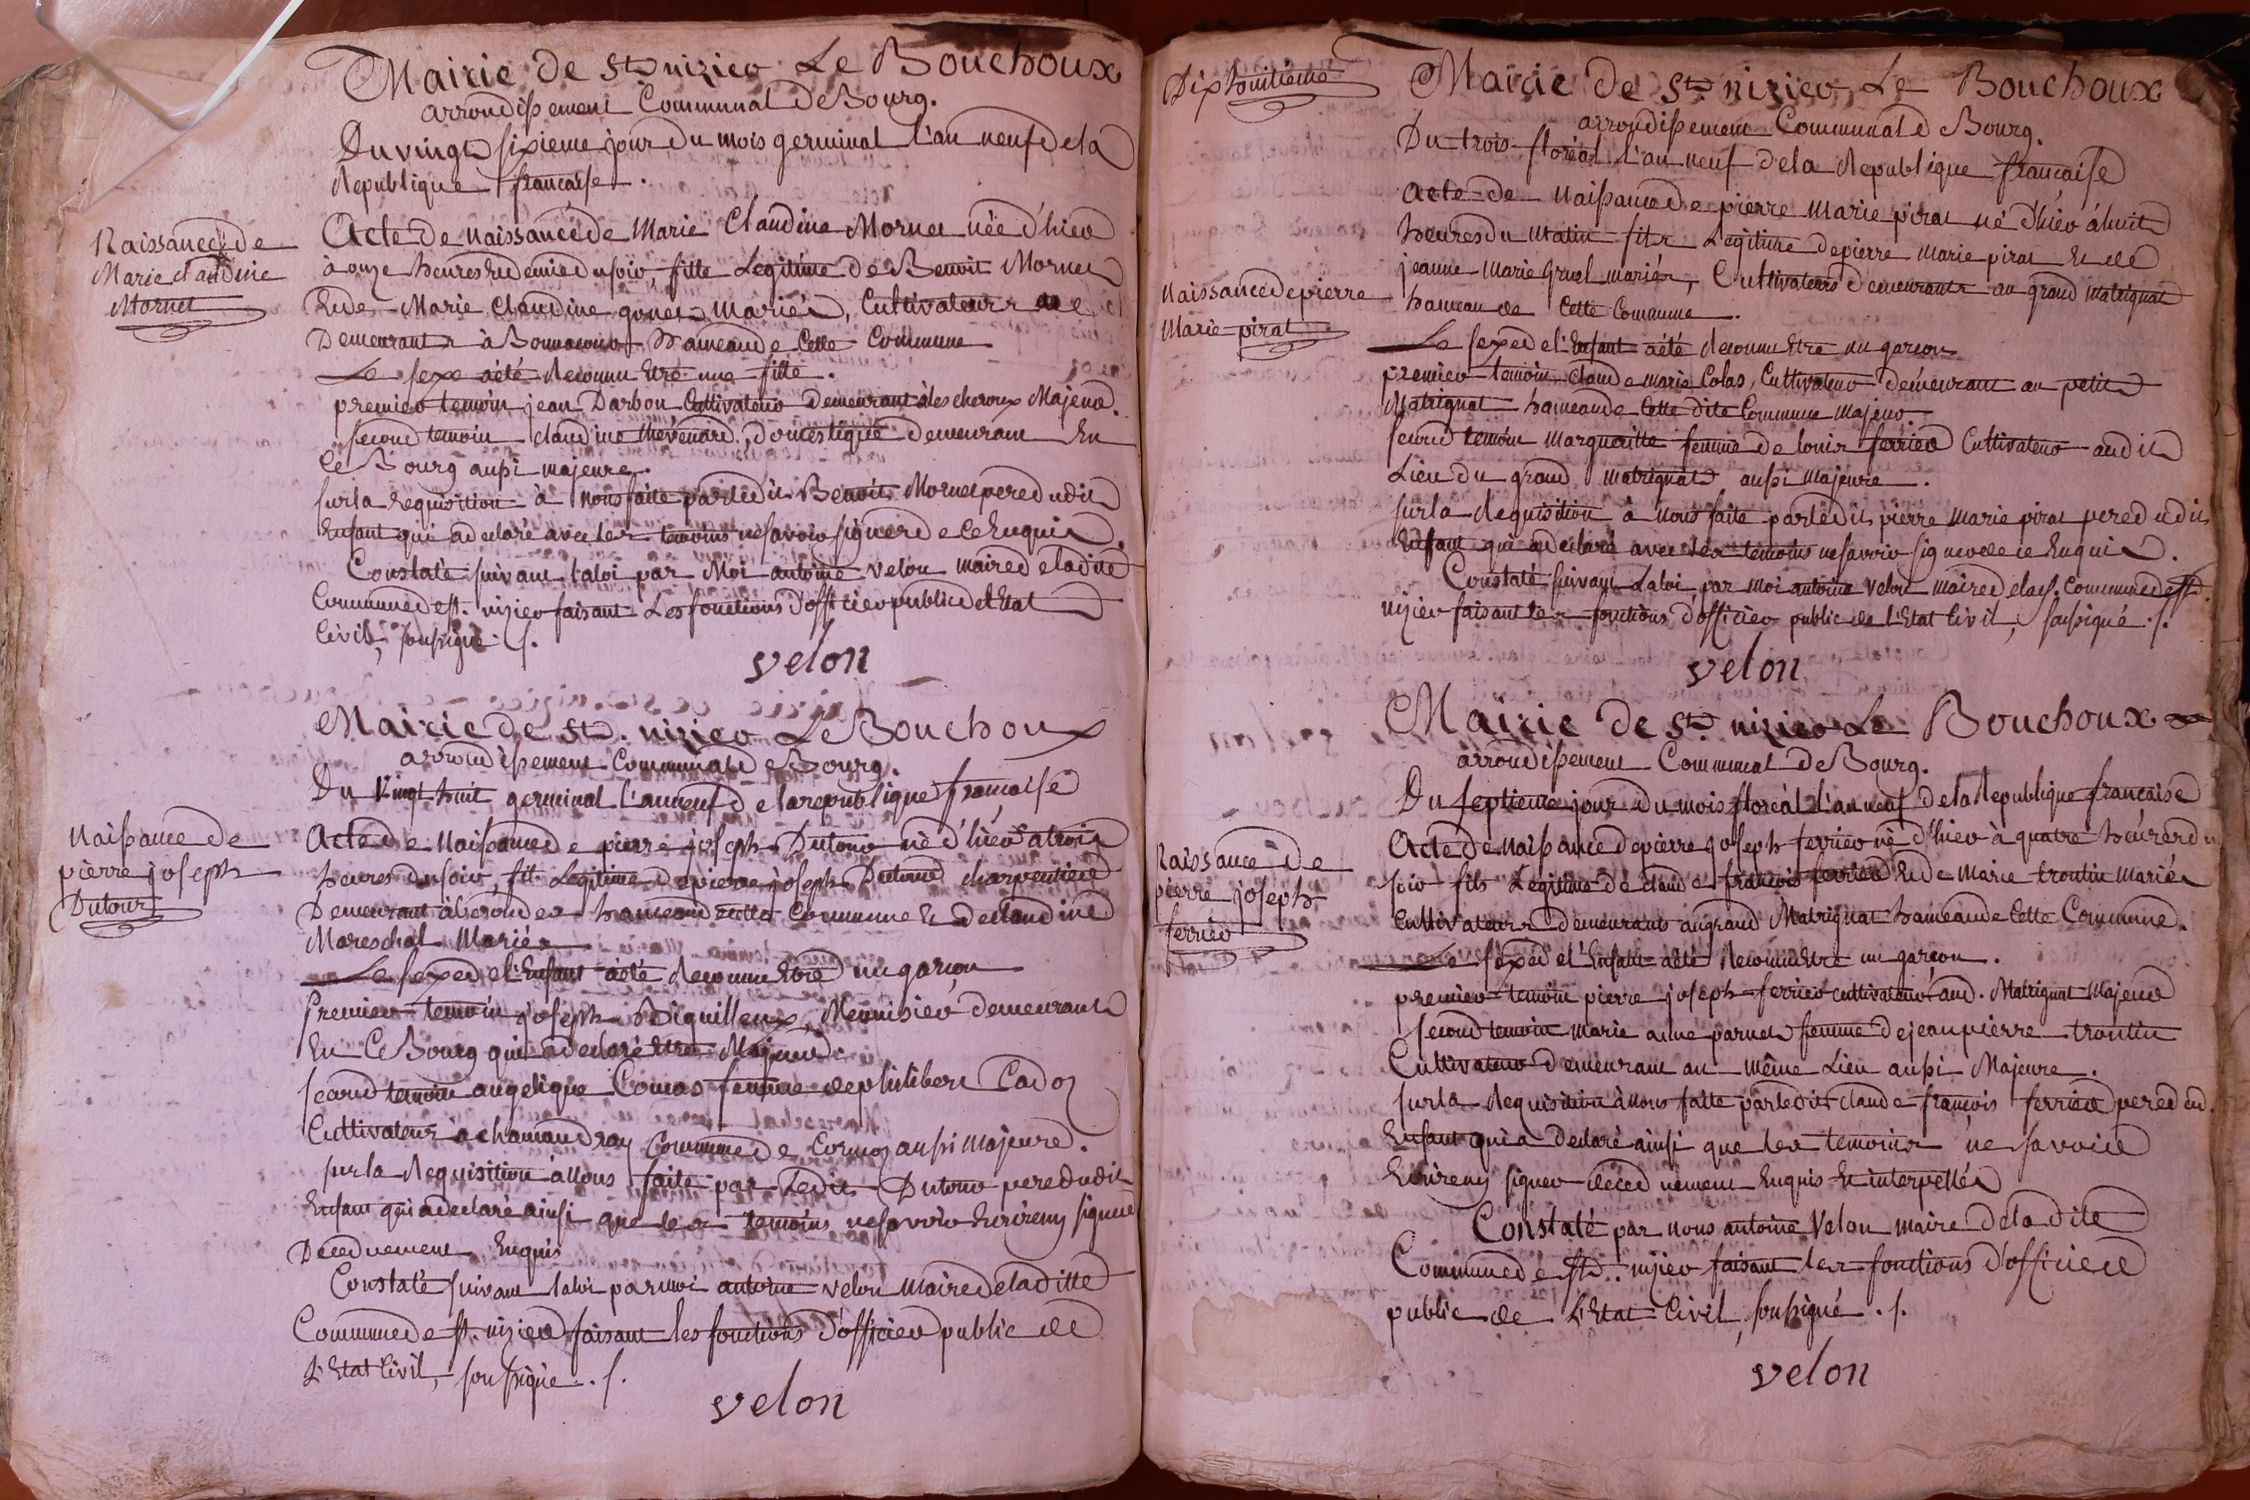 Mairie de st. nizier Le Bouchoux
arrondissement Communal de Bourg.
Du vingt sixieme jour du mois germinal l'an neuf de la
Republique française.
Naissance de
Marie claudine
Mornet
Acte de naissance de Marie Claudine Mornet née d'hier
à onze heures et demie du soir, fille Legitime de Benoit Mornet
Et de Marie Claudine gonet mariés, Cultivateurs
Demeurants à hameau de Cette Commune
Le sexe a été Reconnu Etre une fille.
premier temoin jean Darbon Cultivateur demeurant à les cheroux Majeur.
second temoin claudine thevenard, domestique demeurant En
Ce Bourg aussi majeure.
sur la requisition à nous faite par ledit Benoit Mornet pere dudit
Enfant qui a declaré avec les temoins ne savoir signer de ce Enquis.
Constaté suivant la loi par Moi antoine velon maire de ladite
Commune de st. nizier faisant Les fonctions d'officier public de l'Etat
Civil, soussigné ./.
velon
Mairie de st. nizier Le Bouchoux
arrondissement Communal de Bourg.
Du vingt huit germinal l'an neuf de la republique française
Naissance de
pierre joseph
Dutour
Acte de Naissance de pierre joseph Dutour né d'hier a trois
heures du soir, fils Legitime de pierre joseph Dutour charpentier
Demeurant hameau cette Commune Et de Claudine
Mareschal Mariés
Le sexe de l'Enfant a été Reconnu Etre un garçon
Premier temoin joseph Diguilleux, Menuisier demeurant
En Ce Bourg qui a declaré Etre Majeur
second temoin angelique Comas femme de philibert Cadoz
Cultivateur a chamandray Commune de Cormoz aussi majeure.
sur la Requisition à Nous faite par Ledit Dutour pere dudit
Enfant qui a declaré ainsi que les temoins ne savoir Ecrire ny signer
De ce duement Enquis
Constaté suivant la loi par moi antoine velon Maire de la ditte
Commune de st. nizier faisant les fonctions d'officier public de
L'Etat Civil, soussigné ./.
velon
Dixhuitieme
Mairie de st. nizier Le Bouchoux
arrondissement Communal de Bourg.
Du trois floréal l'an neuf de la Republique française
Naissance de pierre
Marie pirat
Acte de Naissance de pierre Marie pirat né d'hier à huit
heures du Matin fils Legitime de pierre Marie pirat Et de
jeanne Marie gruel mariés, Cultivateurs demeurants au grand matrignat
hameau de Cette Commune.
Le sexe de l'Enfant a été Reconnu Etre un garçon
premier temoin claude marie Colas, Cultivateur demeurant au petit
Matrignat hameau de Cette dite Commune majeur
second temoin Marguerite femme de louis ferrier Cultivateur audit
Lieu du grand matrignat aussi majeure.
sur la Requisition à Nous faite par ledit pierre Marie pirat pere dudit
Enfant qui a declaré avec les temoins ne savoir signer de ce Enquis.
Constaté suivant La loi par moi antoine velon maire de la Commune de st.
nizier faisant les fonctions d'officier public de l'Etat Civil, soussigné ./.
velon
Mairie de st. nizier Le Bouchoux
arrondissement Communal de Bourg.
Du septieme jour du mois floréal l'an neuf de la Republique française
Naissance de
pierre joseph
ferrier
Acte de Naissance de pierre joseph ferrier né d'hier à quatre heures du
soir fils Legitime de claude françois ferrier Et de Marie trontin Mariés
Cultivateurs Demeurants au grand Matrignat hameau de Cette Commune.
Le sexe de l'Enfant a été Reconnu Etre un garçon.
premier temoin pierre joseph ferrier cultivateur aud. Matrignat Majeur
second temoin Marie anne parnet femme de jean pierre trontin
Cultivateur demeurant au même Lieu aussi Majeure.
sur la Requisition à Nous faite par ledit claude françois ferrier pere dud.
Enfant qui a declaré ainsi que les temoins ne savoir
Ecrire ny signer de ce duement Enquis Et interpellés
Constaté par nous antoine Velon maire de la dite
Commune de st. nizier faisant les fonctions d'officier
public de L'Etat Civil, soussigné ./.
velon